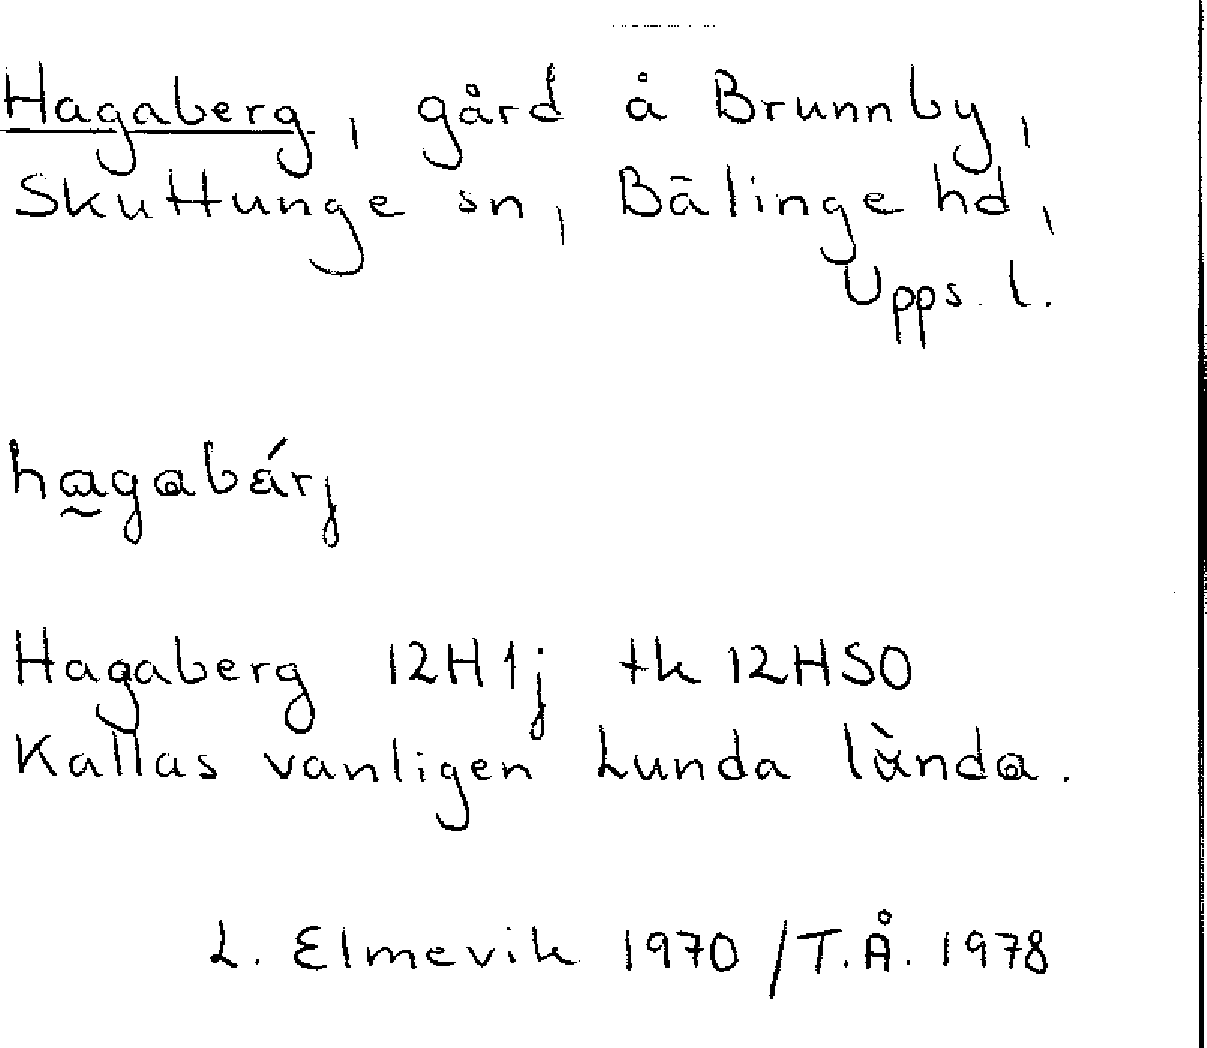 Hagaberg, gård å Brunnby,
Skuttunge sn, Bälinge hd,
Upps. l.
hagabärj
Hagaberg 12H1j tk 12HSO
Kallas vanligen Lunda lùnda.
L. Elmevik 1970 / T.Å. 1978